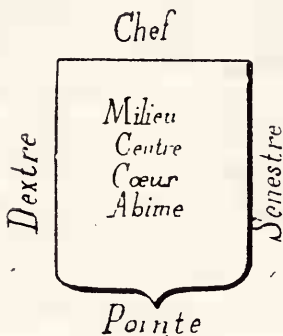 Chef
Dextre
Milieu
Centre
Cœur
Abime
Senestre
Pointe